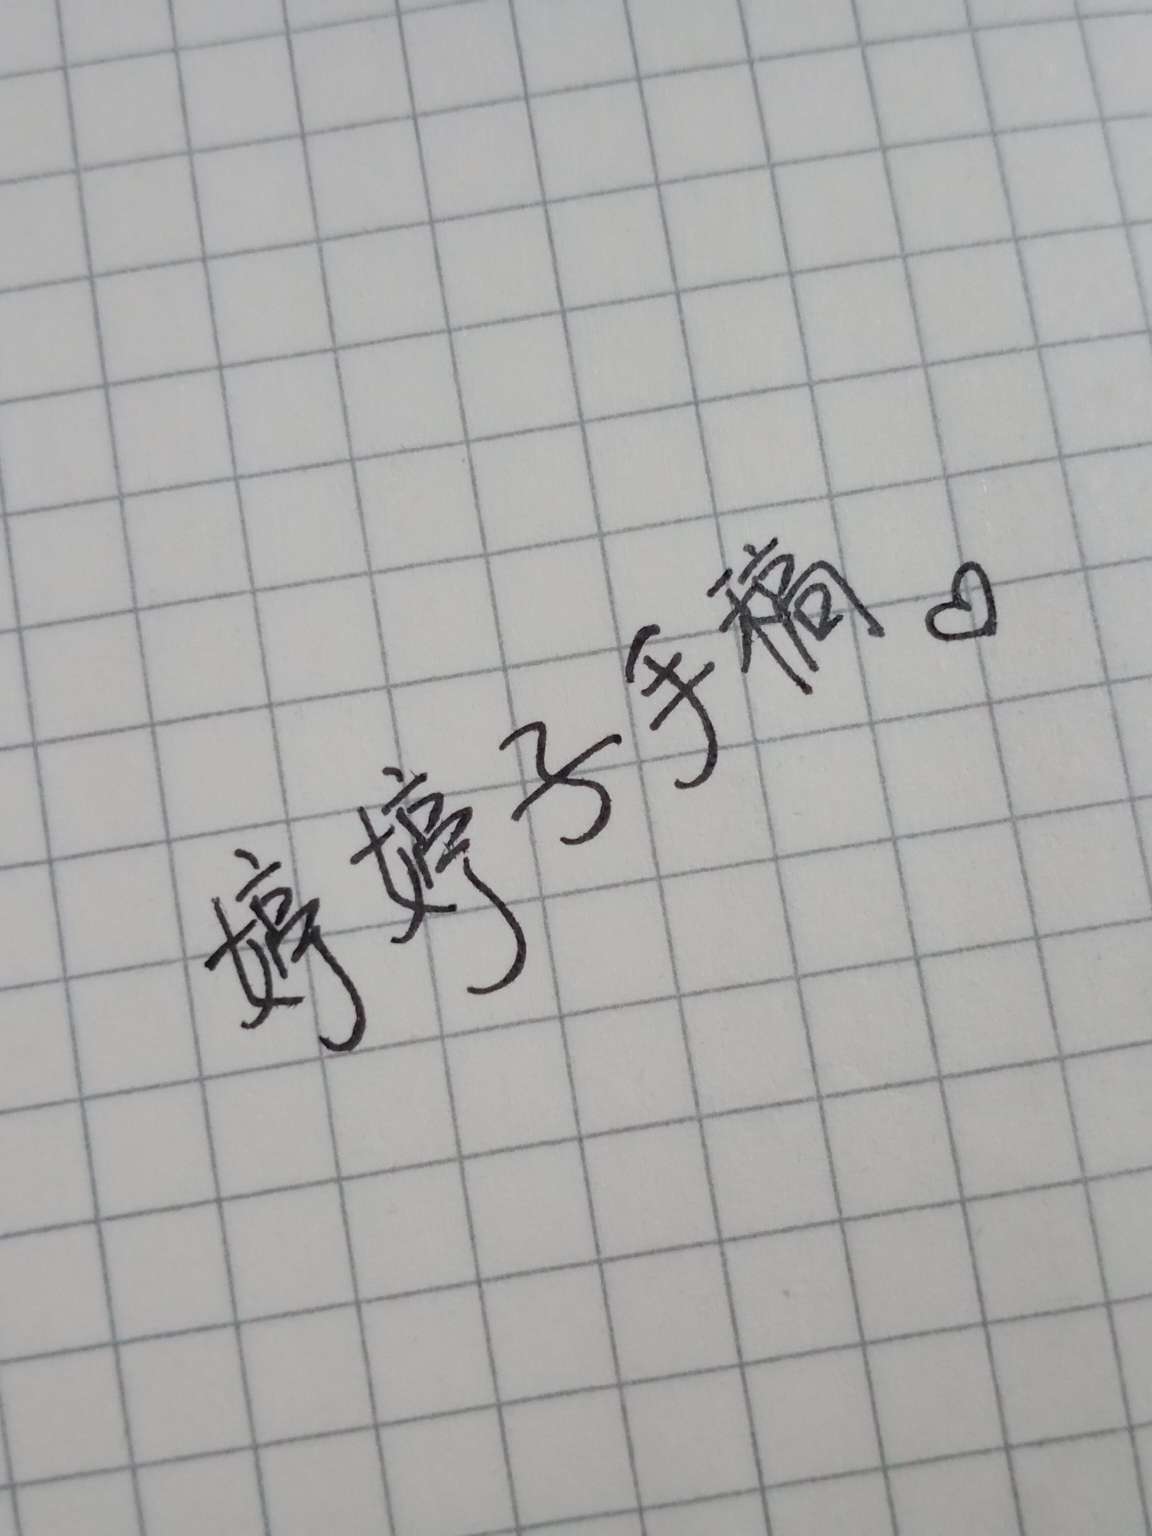 婷婷子手稿♡